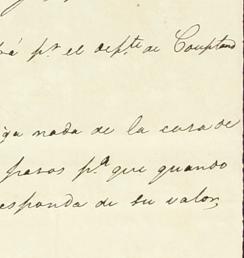 rá pr. el depte. de Couptand
iga nada de la casa de
pasos pa. que quando
esponda de su valor,